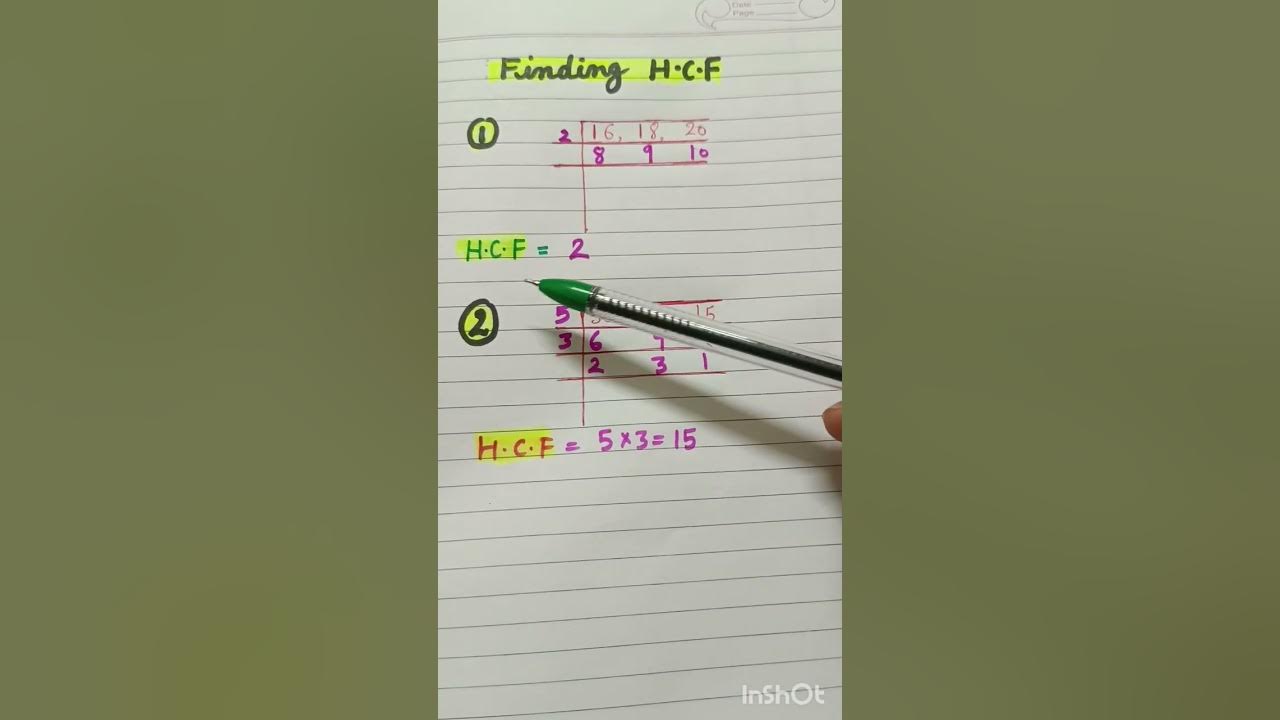 Date
Page
Finding H.C.F
1
2 16, 18, 20
8 9 10
H.C.F = 2
2
5 15
3 6
2 3 1
H.C.F = 5 × 3 = 15
InShOt